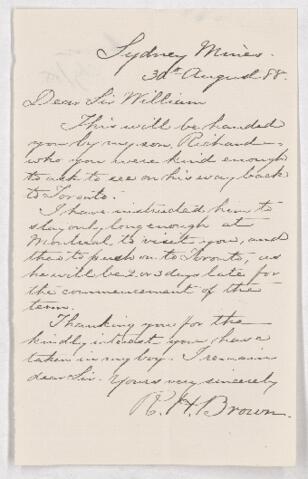 Sydney Mines.
30th August 88.
Dear Sir William
This will be handed
you by my son, Richard,
who you were kind enough
to ask to see on his way back
to Toronto.
I have instructed him to
stay only long enough at
Montreal to visit you, and
then to push on to Toronto, as
he will be 2 or 3 days late for
the commencement of the
term.
Thanking you for the
kindly interest you have
taken in my boy. I remain
dear Sir. Yours very sincerely
R. H. Brown.